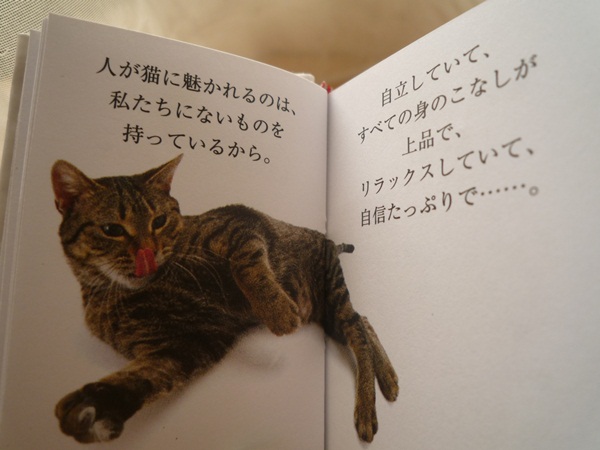 人が猫に魅かれるのは、
私たちにないものを
持っているから。
自立していて、
すべての身のこなしが
上品で、
リラックスしていて、
自信たっぷりで……。